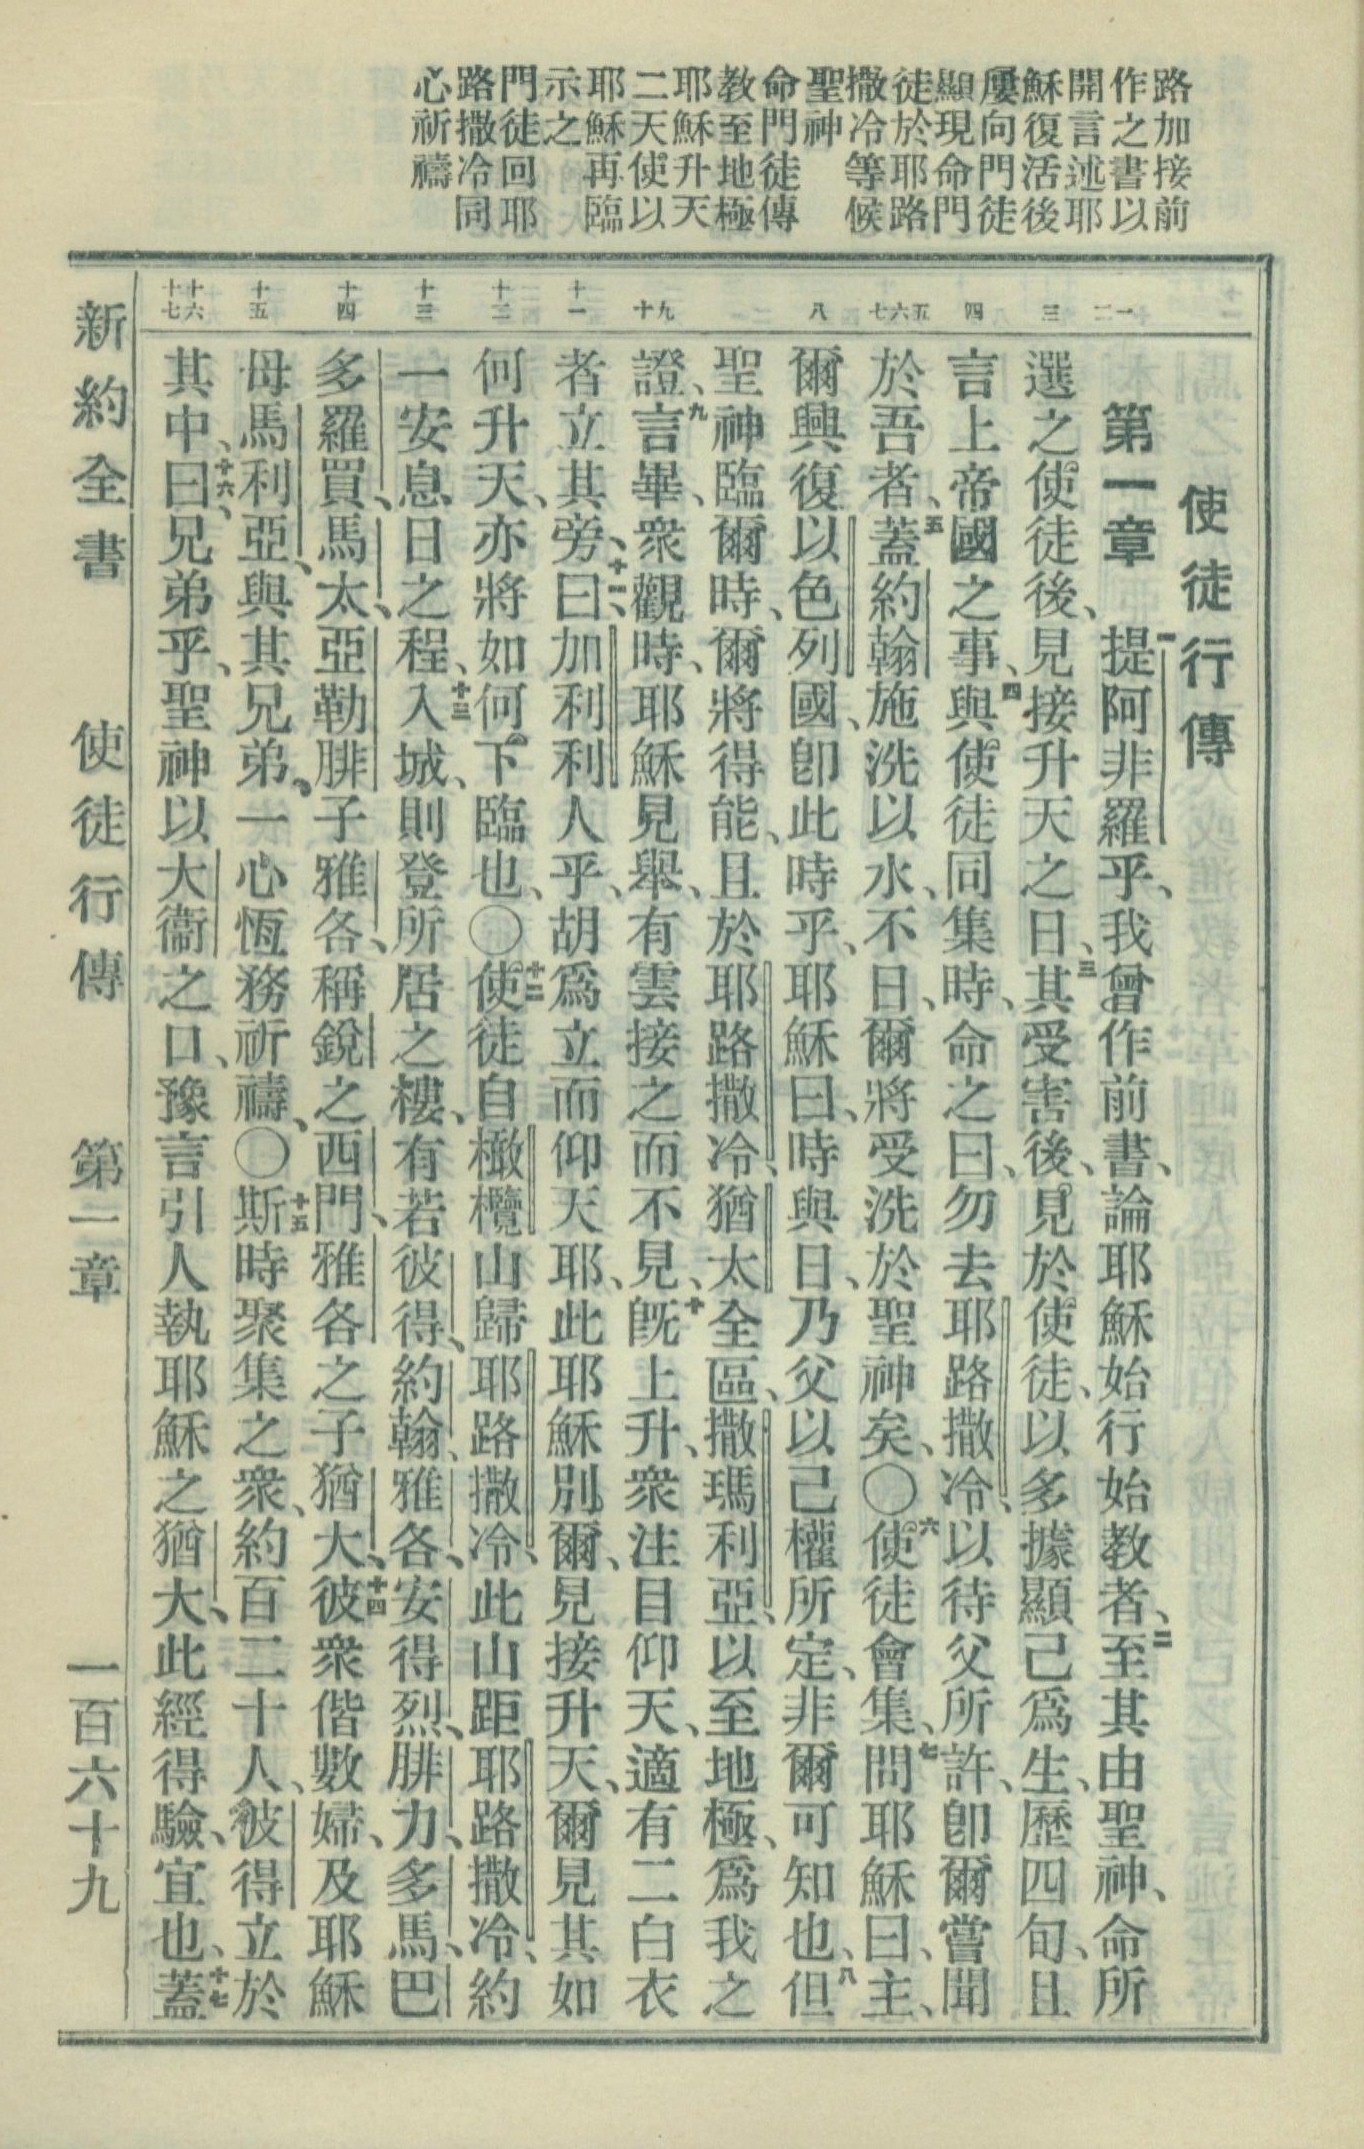 路加接前
作之書以
開言述耶
穌復活後
屢向門徒
顯現命門
徒於耶路
撒冷等候
聖神
命門徒傳
教至地極
耶穌升天
二天使以
耶穌再臨
示之
門徒回耶
路撒冷同
心祈禱
一二
三
四
五六七
八
九十
十一
十二
十三
十四
十五
十六十七
使徒行傳
第一章 一提阿非羅乎、我曾作前書、論耶穌始行始教者、二至其由聖神、命所
選之使徒後、見接升天之日、三其受害後、見於使徒、以多據顯己爲生、歷四旬、且
言上帝國之事、四與使徒同集時、命之曰、勿去耶路撒冷、以待父所許、卽爾嘗聞
於吾者、五蓋約翰施洗以水、不日、爾將受洗於聖神矣、〇六使徒會集、問耶穌曰、主、
爾興復以色列國、卽此時乎、七耶穌曰、時與日、乃父以己權所定、非爾可知也、八但
聖神臨爾時、爾將得能、且於耶路撒冷、猶太全區、撒瑪利亞、以至地極、爲我之
證、九言畢、衆觀時、耶穌見舉、有雲接之而不見、十旣上升、衆注目仰天、適有二白衣
者立其旁、十一曰、加利利人乎、胡爲立而仰天耶、此耶穌別爾、見接升天、爾見其如
何升天、亦將如何下臨也、〇十二使徒自橄欖山歸耶路撒冷、此山距耶路撒冷、約
一安息日之程、十三入城、則登所居之樓、有若彼得、約翰、雅各、安得烈、腓力、多馬、巴
多羅買、馬太、亞勒腓子雅各、稱銳之西門、雅各之子猶大、十四彼衆偕數婦、及耶穌
母馬利亞、與其兄弟、一心恆務祈禱、〇十五斯時聚集之衆、約百二十人、彼得立於
其中、曰、十六兄弟乎、聖神以大衞之口、豫言引人執耶穌之猶大、此經得驗、宜也、十七蓋
新約全書 使徒行傳 第一章 一百六十九